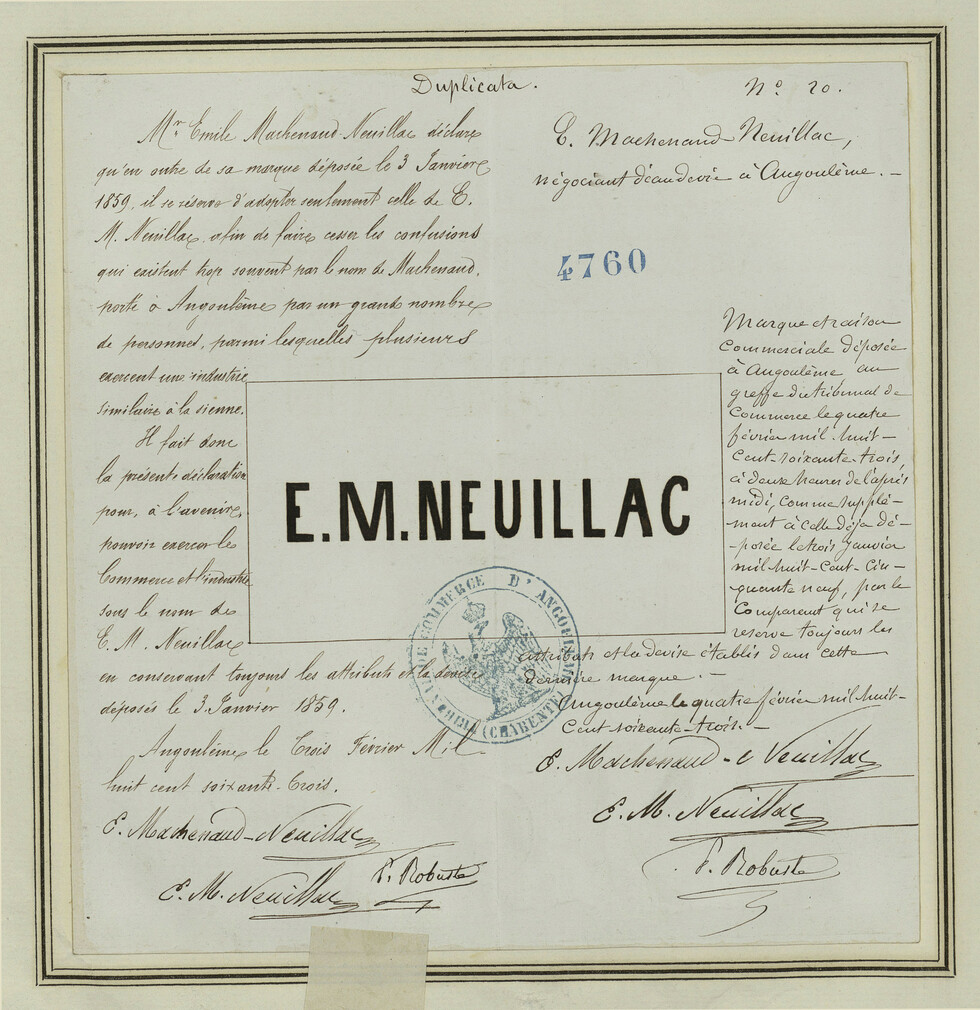 Duplicata.
Nº 20.
Mr. Emile Machenaud-Neuillac déclare
qu'en outre de sa marque déposée le 3 Janvier
1859, il se réserve d'adopter seulement celle de E.
M. Neuillac afin de faire cesser les confusions
qui existent trop souvent par le nom de Machenaud,
porté à Angoulême par un grand nombre
de personnes, parmi lesquelles plusieurs
exercent une industrie
similaire à la sienne.
Il fait donc
la présente déclaration
pour, à l'avenir,
pouvoir exercer le
Commerce et l'industrie
sous le nom de
E. M. Neuillac
en conservant toujours les attributs et la devise
déposés le 3 Janvier 1859.
Angoulême le Trois Février Mil
huit cent soixante-trois.
E. Machenaud-Neuillac
E. M. Neuillac
F. Robuste
E. Machenaud-Neuillac,
négociant d'eau de vie à Angoulême.-
4760
Marque et raison
commerciale déposée
à Angoulême au
greffe du tribunal de
Commerce le quatre
février mil huit-
cent-soixante-trois,
à deux heures de l'après
midi, comme supplé-
ment à celle déjà dé-
-posée le trois janvier
mil huit-cent-cin-
-quante neuf, par le
Comparent qui se
reserve toujours les
attributs et la devise établis dans cette
dernière marque.-
Angoulême le quatre février mil huit-
Cent soixante-trois.-
E. Machenaud-Neuillac
E. M. Neuillac
F. Robuste
E.M. NEUILLAC
DE COMMERCE D'ANGOULÊME
(CHARENTE)